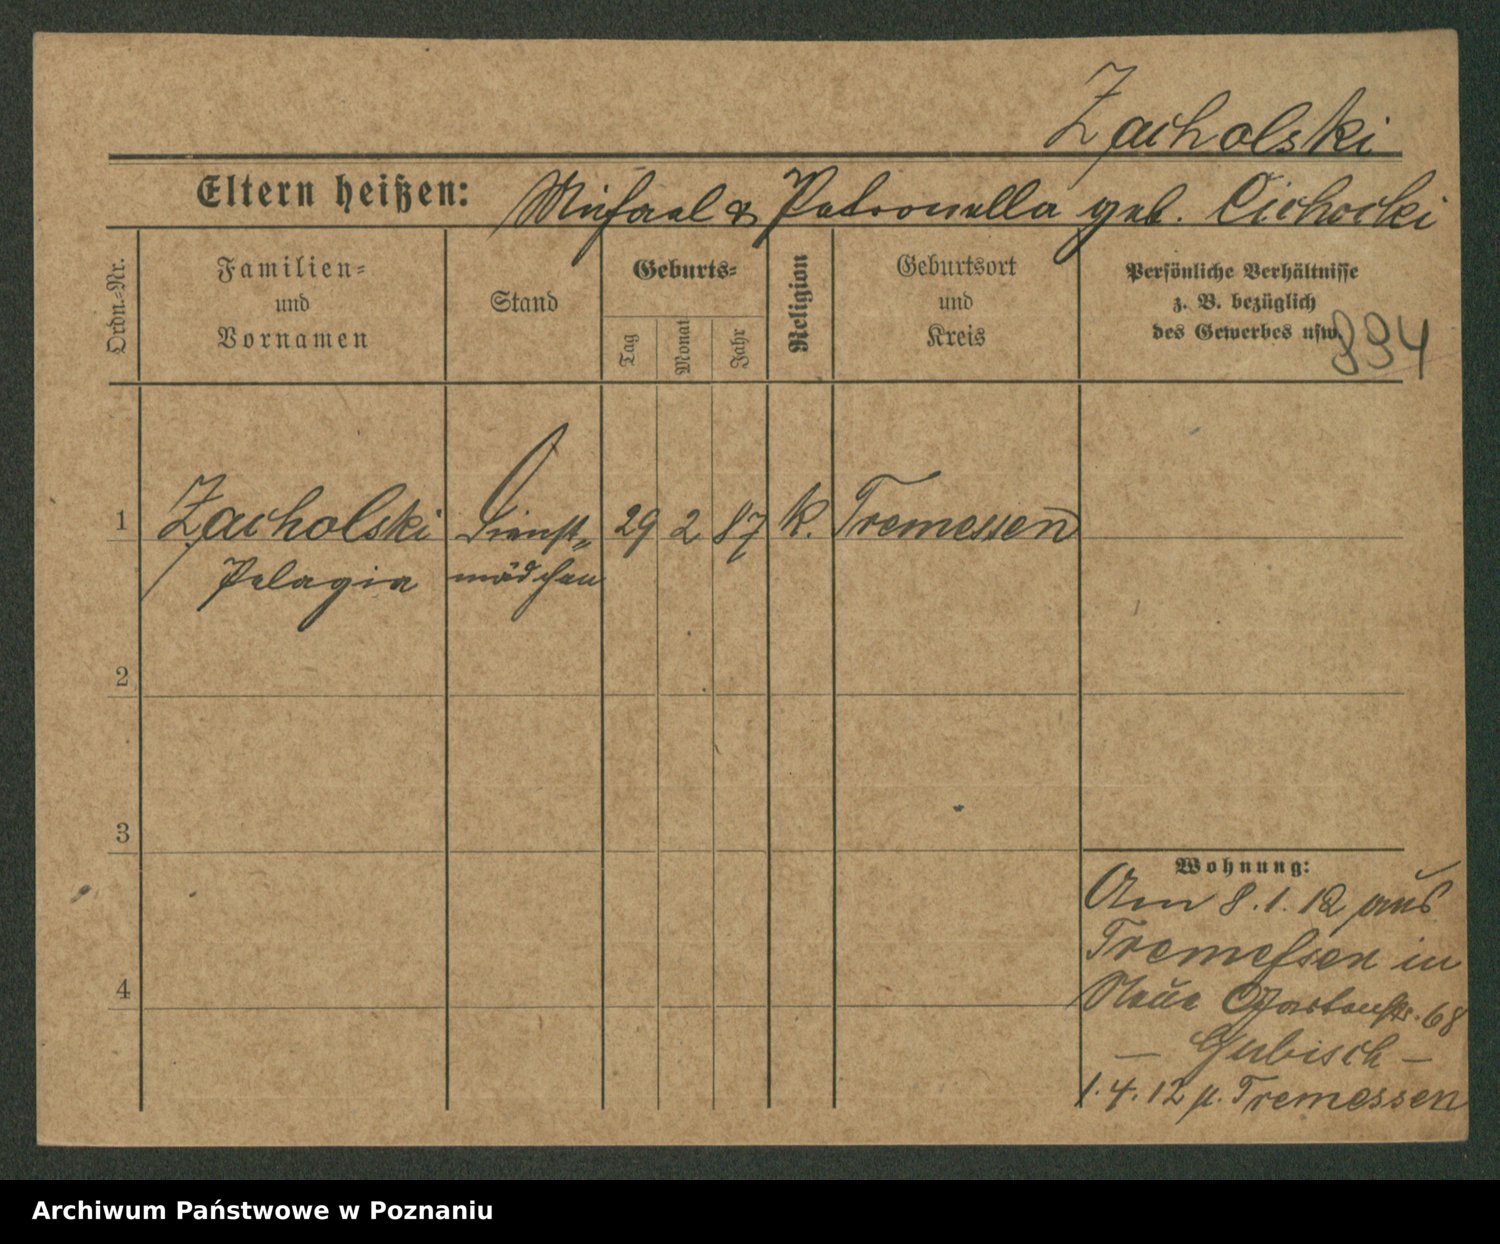 Zacholski
Eltern heißen: Michael & Petronella geb. Cichocki
Ordn.-Nr.
Familien-
und
Vornamen
Stand
Geburts-
Tag
Monat
Jahr
Religion
Geburtsort
und
Kreis
Persönliche Verhältnisse
z. B. bezüglich
des Gewerbes usw.
894
1 Zacholski Dienst- 29 2 87 k. Tremessen
Pelagia mädchen
2
3
4
Wohnung:
Am 8.1.12 aus
Tremeſsen in
Neue Gartenstr. 68
— Gubisch —
1.4.12 n. Tremessen
Archiwum Państwowe w Poznaniu